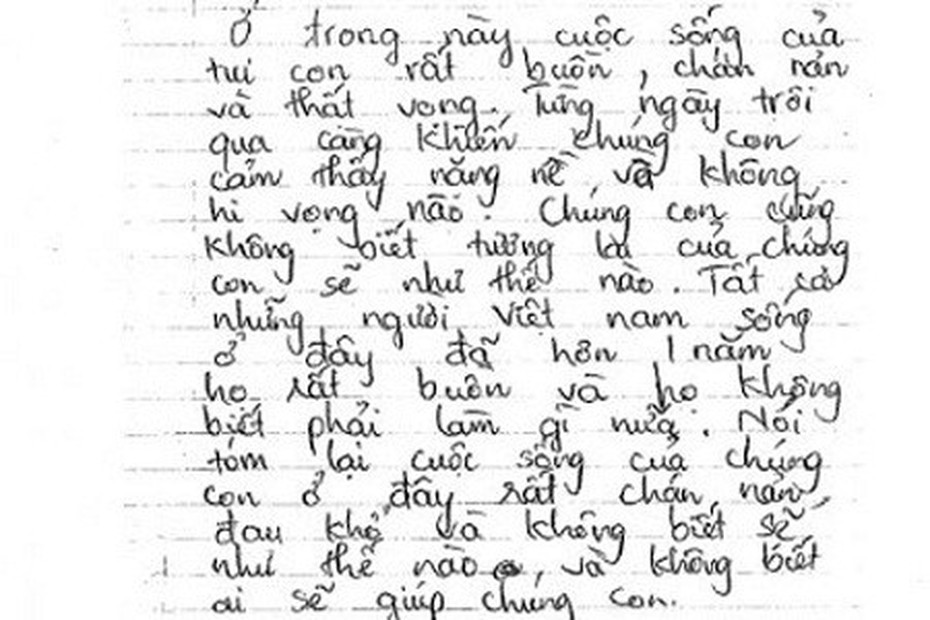 Ở trong này cuộc sống của
tụi con rất buồn, chán nản
và thất vọng. Từng ngày trôi
qua càng khiến chúng con
cảm thấy nặng nề, và không
hi vọng nào. Chúng con cũng
không biết tương lai của chúng
con sẽ như thế nào. Tất cả
những người Việt nam sống
ở đây đã hơn 1 năm
họ rất buồn và họ không
biết phải làm gì nữa. Nói
tóm lại cuộc sống của chúng
con ở đây rất chán nản,
đau khổ và không biết sẽ
như thế nào, và không biết
ai sẽ giúp chúng con.